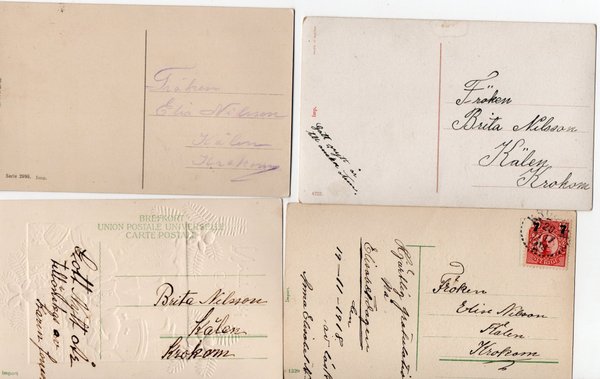 Fröken
Elin Nilsson
Kälen
Krokom
Serie 2996.
Fröken
Brita Nilsson
Kälen
Krokom
Gott nytt år
4725.
BREFKORT
UNION POSTALE UNIVERSELLE
CARTE POSTALE
Gott Nytt År
tillönskas av
Karin
Brita Nilsson
Kälen
Krokom
Import
Hjärtlig gratulation
på
Elisabetdagen
den
19-11-1918
av
Anna
Fröken
Elin Nilsson
Kälen
Krokom
7 7
SVERIGE